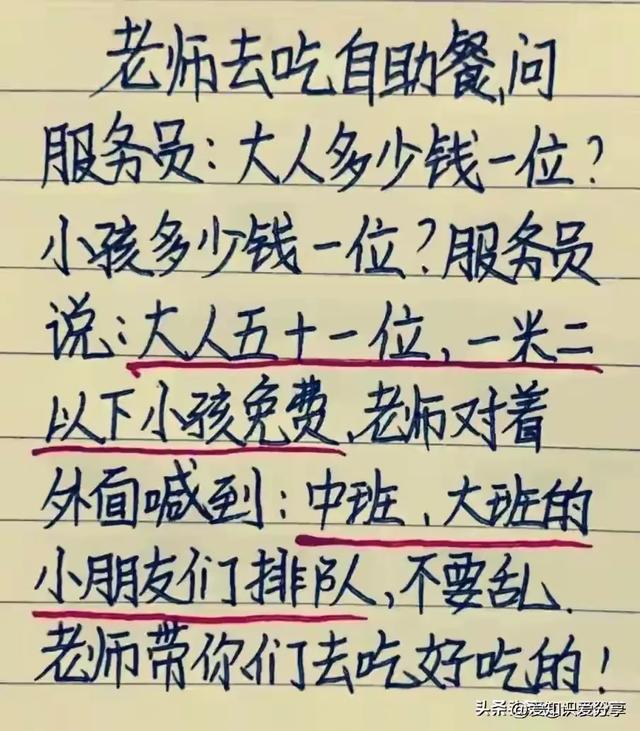 老师去吃自助餐,问
服务员:大人多少钱一位?
小孩多少钱一位?服务员
说:大人五十一位,一米二
以下小孩免费,老师对着
外面喊到:中班、大班的
小朋友们排队,不要乱.
老师带你们去吃好吃的!
头条@爱知识爱分享